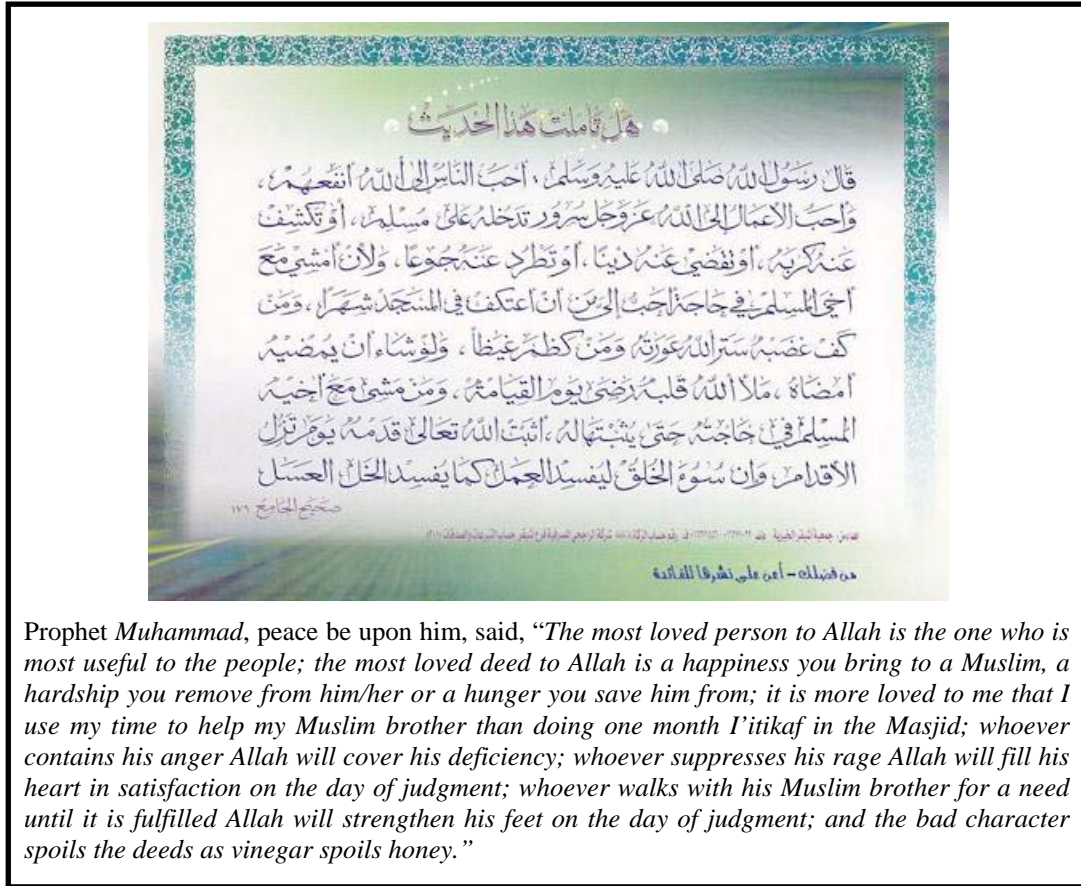 هل تأملت هذا الحديث
قال رسول الله صلى الله عليه وسلم . أحب الناس إلى الله أنفعهم ،
وأحب الأعمال إلى الله عز وجل سرور تدخله على مسلم ، أو تكشف
عنه كربة ، أو تقضي عنه دينا ، أو تطرد عنه جوعا ، ولأن أمشي مع
أخي المسلم في حاجة أحب إلي من أن أعتكف في المسجد شهرا ، ومن
كف غضبه ستر الله عورته ومن كظم غيظا ، ولو شاء أن يمضيه
أمضاه ، ملأ الله قلبه رضى يوم القيامة ، ومن مشى مع أخيه
المسلم في حاجته حتى يثبتها له ، أثبت الله تعالى قدمه يوم تزل
الأقدام ، وإن سوء الخلق ليفسد العمل كما يفسد الخل العسل
صحيح الجامع ١٧٦
من فضلك - أعن على نشرها للفائدة
Prophet Muhammad, peace be upon him, said, “The most loved person to Allah is the one who is
most useful to the people; the most loved deed to Allah is a happiness you bring to a Muslim, a
hardship you remove from him/her or a hunger you save him from; it is more loved to me that I
use my time to help my Muslim brother than doing one month I’itikaf in the Masjid; whoever
contains his anger Allah will cover his deficiency; whoever suppresses his rage Allah will fill his
heart in satisfaction on the day of judgment; whoever walks with his Muslim brother for a need
until it is fulfilled Allah will strengthen his feet on the day of judgment; and the bad character
spoils the deeds as vinegar spoils honey.”